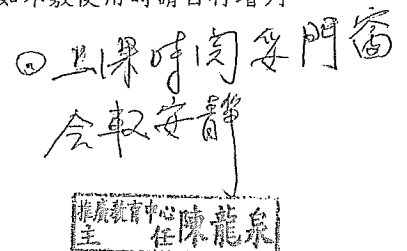 如不敷使用時請自行增列
上課時間 門窗
會較安靜
推廣教育中心
主 任 陳龍泉